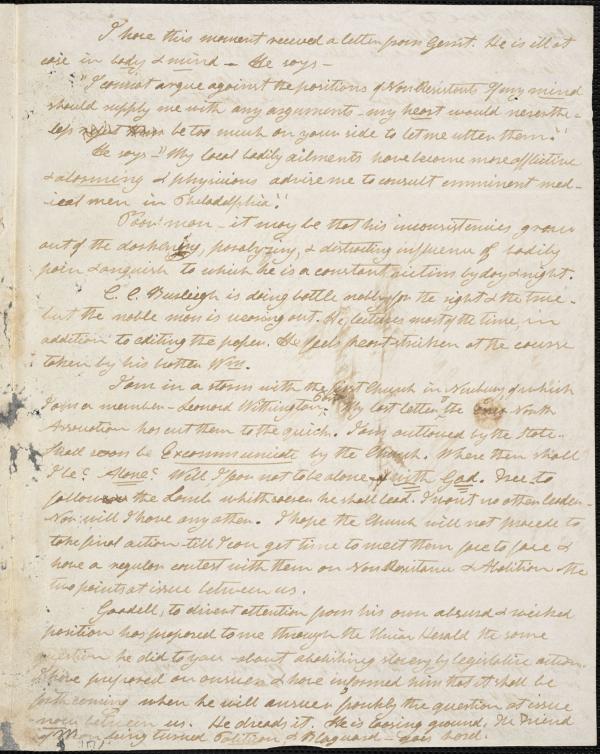 I have this moment received a letter from Gerrit. He is ill at
ease in body & mind – He says –
"I cannot argue against the positions of Non Resistants If my mind
should supply me with any arguments – my heart would neverthe-
less be too much on your side to let me utter them."
He says – "My local bodily ailments have become more afflictive
& alarming & physicians advise me to consult emminent med-
ical men in Philadelphia."
Poor man – it may be that his inconsistencies grow
out of the darkening, paralyzing, & distracting influence of bodily
pain & anguish to which he is a constant victim by day & night.
C. C. Burleigh is doing battle nobly for the right & the true –
but the noble man is wearing out. He lectures most of the time, in
addition to editing the paper. He feels heart stricken at the course
taken by his brother Wm.
I am in a storm with the first Church in Newbury, of which
I am a member – Leonard Withington My last letter to the Essex North
Association has cut them to the quick. I am outlawed by the State –
shall soon be Excommunicate by the Church. Where then shall
I be? Alone? Will I fear not to be alone – with God. Free to
follow the Lamb whithsoever he shall lead. I want no other leader –
Nor will I have any other. I hope the Church will not precede to
take final action till I can get time to meet them face to face &
have a regular contest with them on Non Resistance & Abolition the
two points at issue between us.
Goodell, to divert attention from his own absurd & wicked
position has proposed to me through the Union Herald the same
question he did to you – about abolishing slavery by legislative action.
I have prepared an answer & have informed him that it shall be
forthcoming when he will answer frankly the question at issue
now between us. He dreads it. He is losing ground. The Friend
of Man being turned Politician & Blaguard – goes hard.